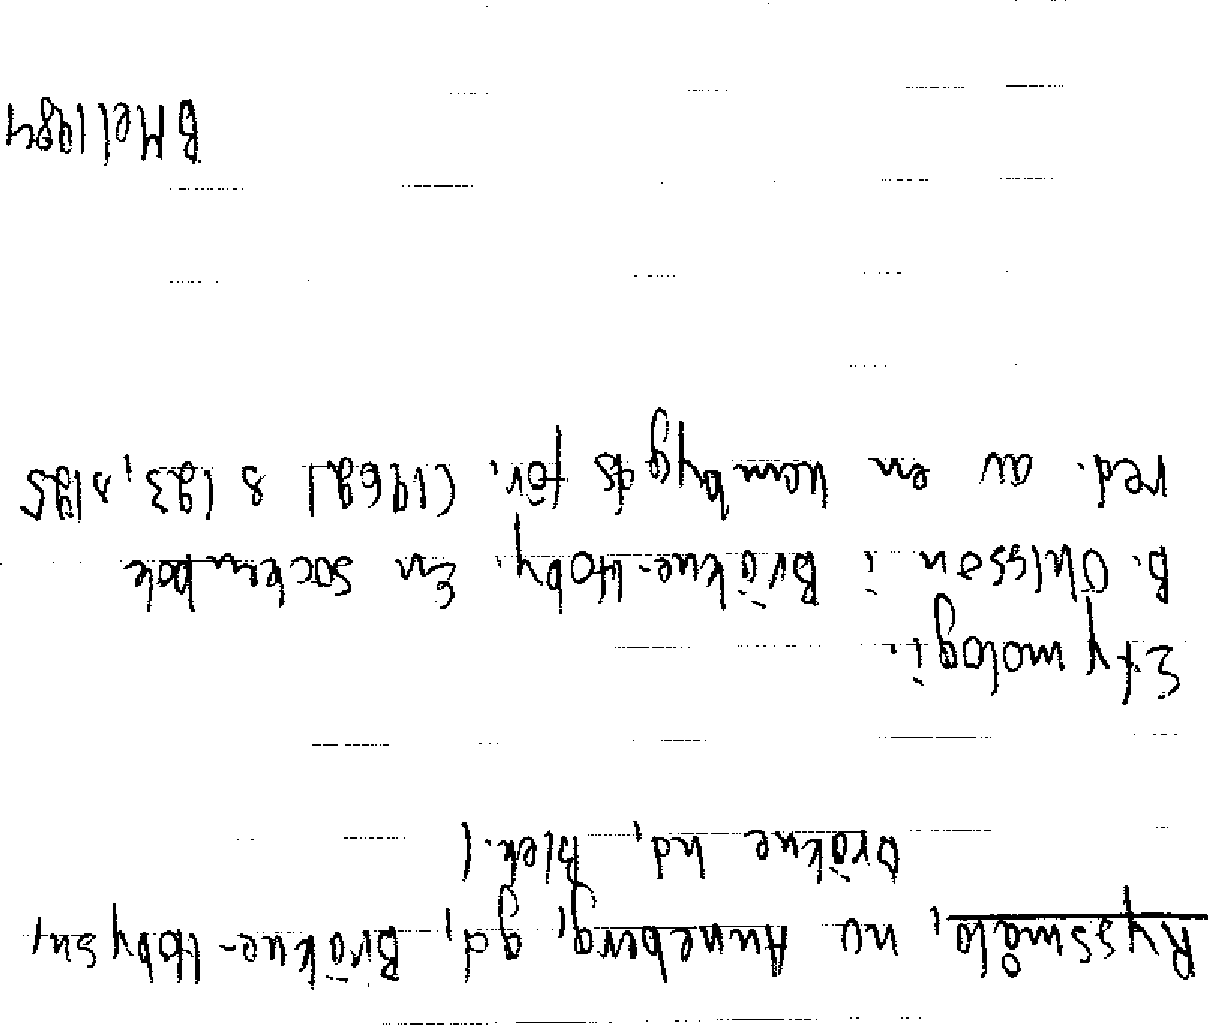 Ryssmåla, nu Anneberg, gd, Bräkne-Hoby sn,
Bräkne hd, Blek. l
Etymologi.
B. Ohlsson i Bräkne-Hoby. En sockenbok
red. av en hembygds för. (1968) s 193, s 195
BMel 1984